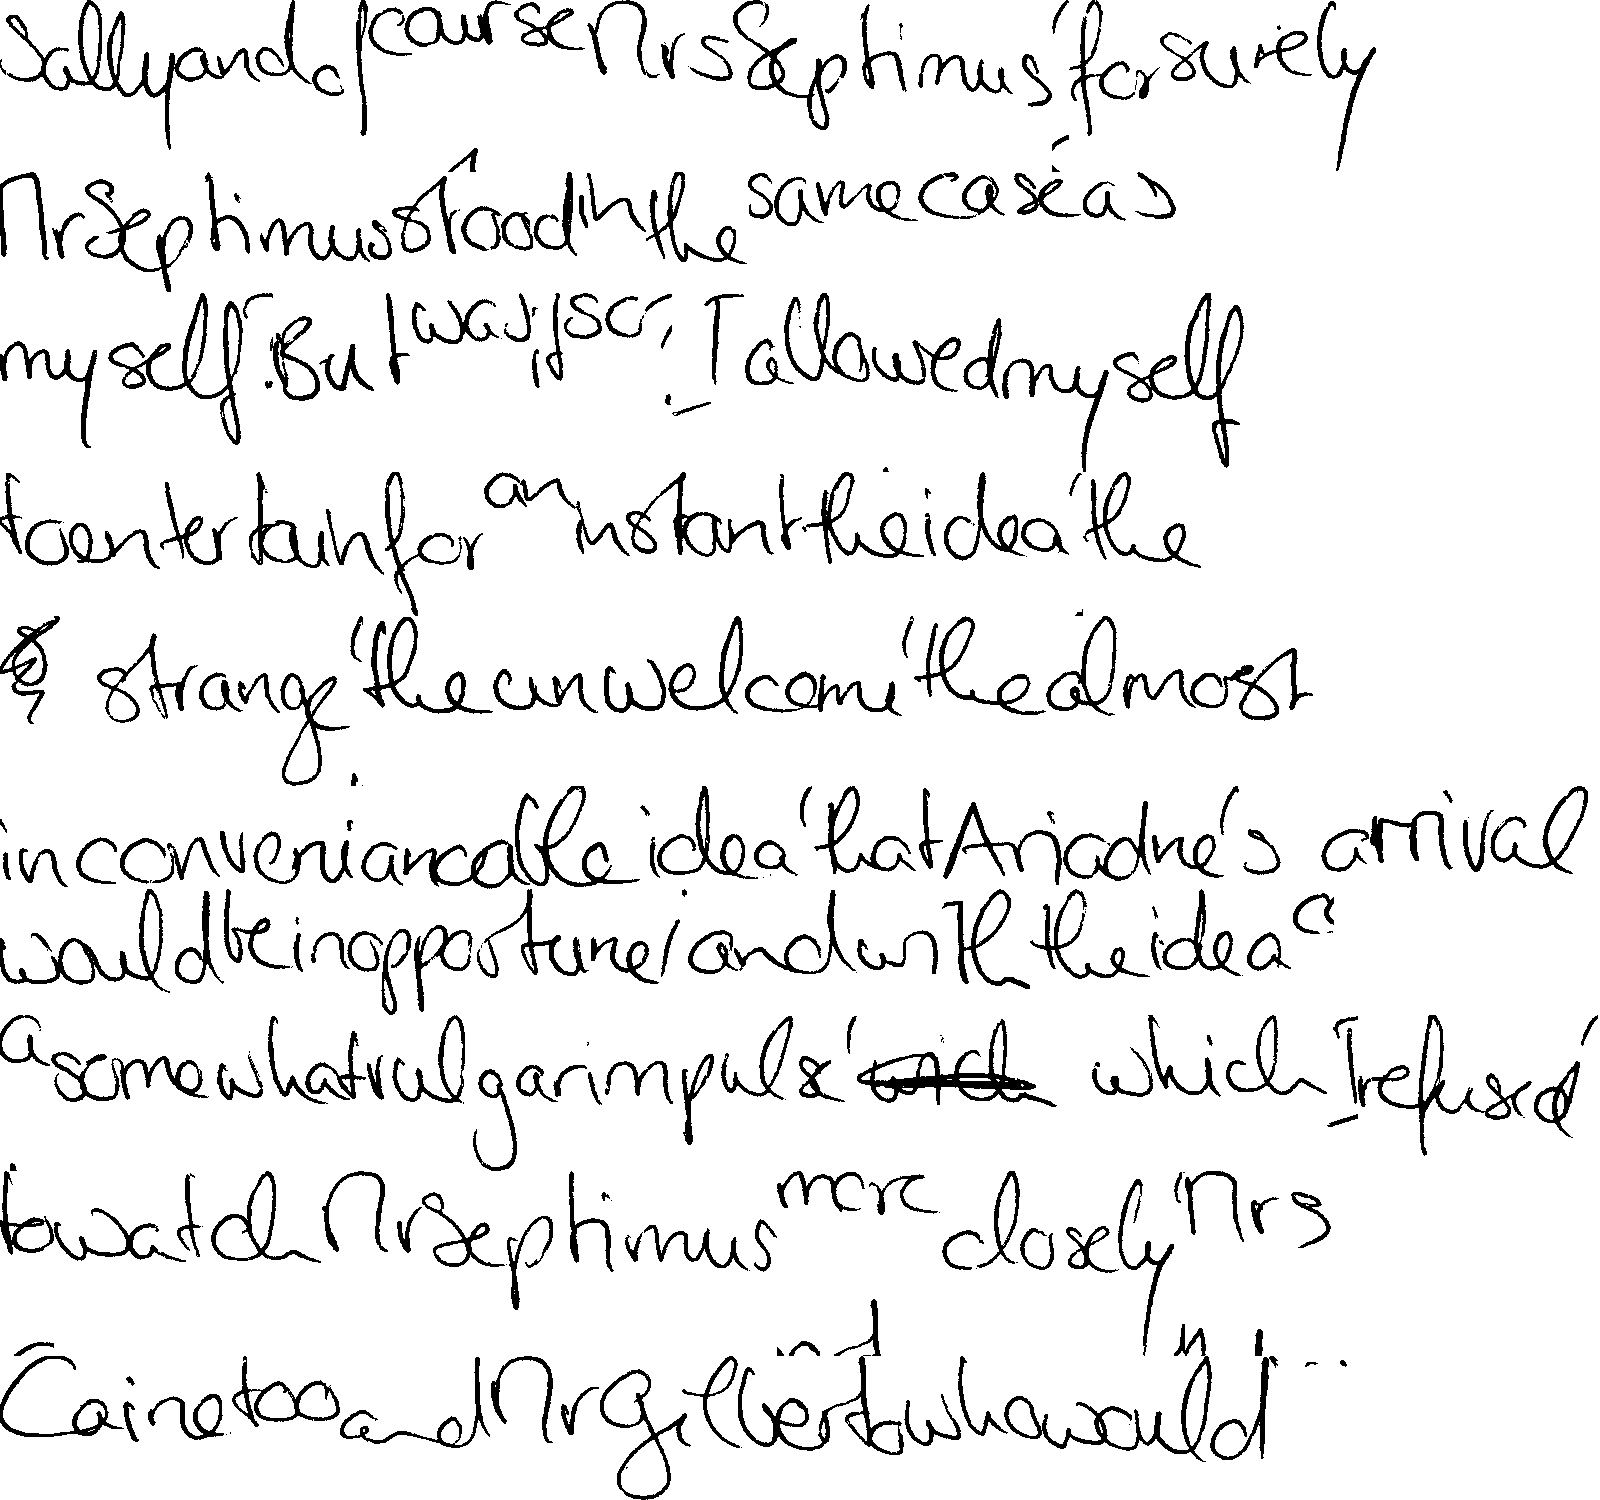 Sally and of course Mrs Septimus' for surely
Mr Septimus stood in the same case' as
myself. But was, I allowed myself
to entertain for an instant the idea' the
strange' the unwelcome' the almost
inconveniancable idea' that Ariadne's arrival
would be inopportune/ and with the idea
a somewhat vulgar impulse' which I refused'
to watch Mr Septimus more closely' Mrs
Caine too and Mr Gilbert who would